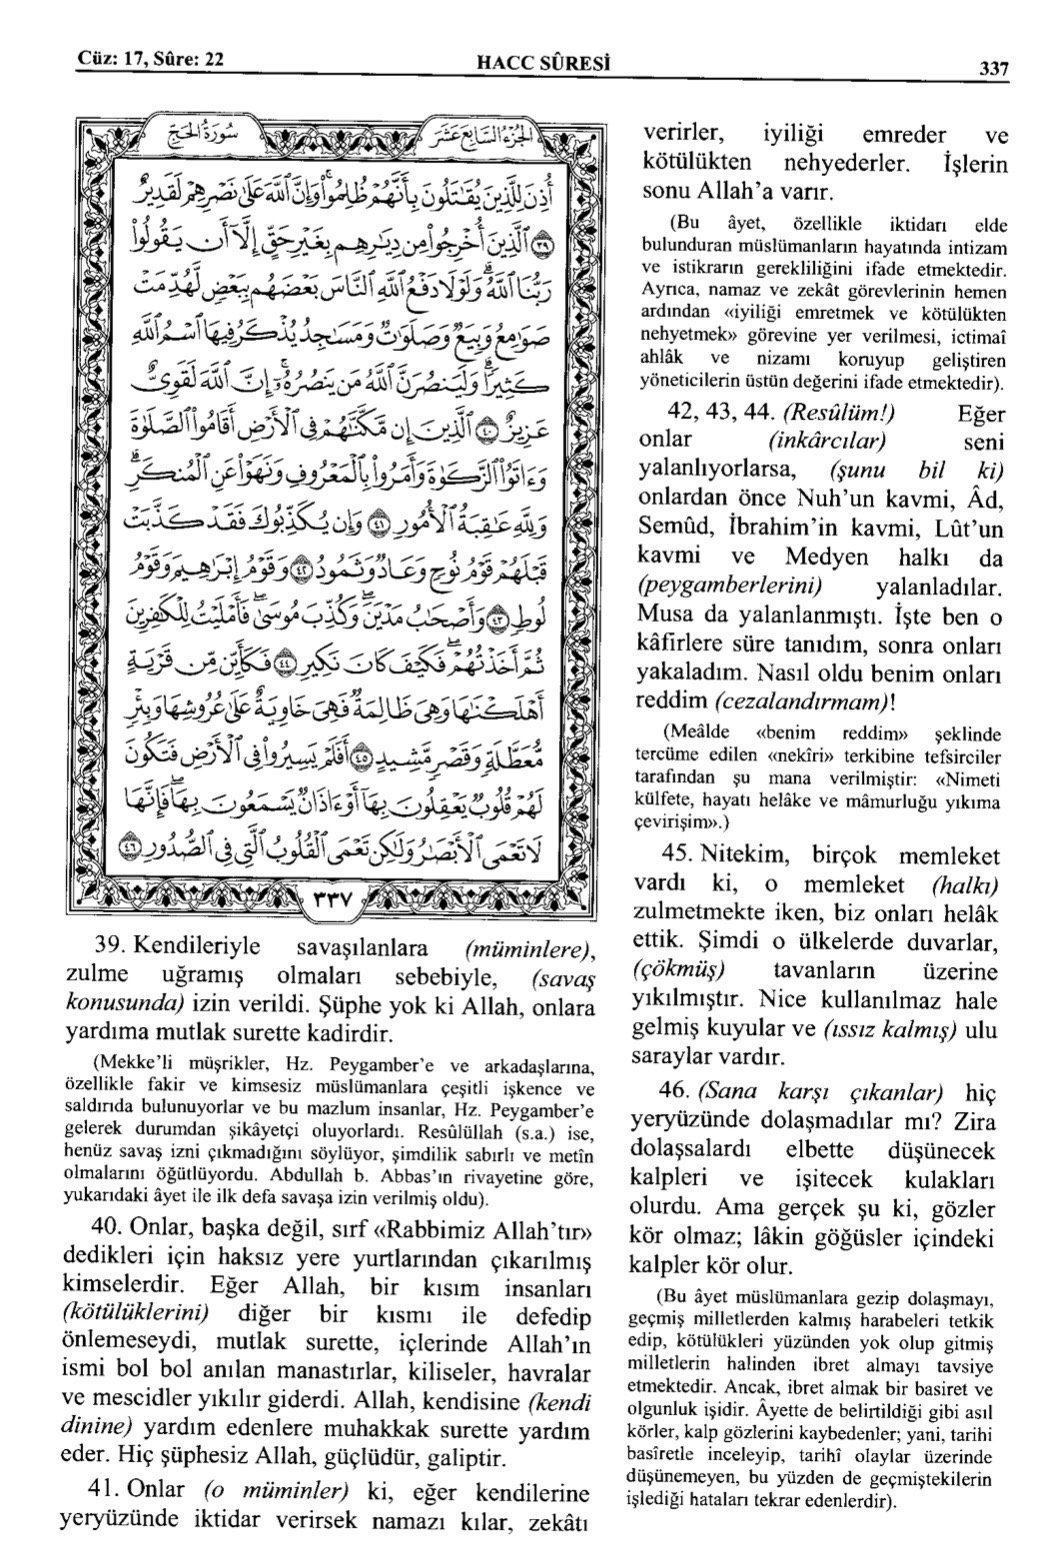 Cüz: 17, Sûre: 22
HACC SÛRESİ
337
سُورَةُ الحَجِّ
الجُزْءُ السَّابِعَ عَشَرَ
أُذِنَ لِلَّذِينَ يُقَٰتَلُونَ بِأَنَّهُمْ ظُلِمُوا۟ وَإِنَّ ٱللَّهَ عَلَىٰ نَصْرِهِمْ لَقَدِيرٌ
٣٩ ٱلَّذِينَ أُخْرِجُوا۟ مِن دِيَٰرِهِم بِغَيْرِ حَقٍّ إِلَّآ أَن يَقُولُوا۟
رَبُّنَا ٱللَّهُ وَلَوْلَا دَفْعُ ٱللَّهِ ٱلنَّاسَ بَعْضَهُم بِبَعْضٍ لَّهُدِّمَتْ
صَوَٰمِعُ وَبِيَعٌ وَصَلَوَٰتٌ وَمَسَٰجِدُ يُذْكَرُ فِيهَا ٱسْمُ ٱللَّهِ
كَثِيرًا وَلَيَنصُرَنَّ ٱللَّهُ مَن يَنصُرُهُۥٓ إِنَّ ٱللَّهَ لَقَوِىٌّ
عَزِيزٌ ٤٠ ٱلَّذِينَ إِن مَّكَّنَّٰهُمْ فِى ٱلْأَرْضِ أَقَامُوا۟ ٱلصَّلَوٰةَ
وَءَاتَوُا۟ ٱلزَّكَوٰةَ وَأَمَرُوا۟ بِٱلْمَعْرُوفِ وَنَهَوْا۟ عَنِ ٱلْمُنكَرِ
وَلِلَّهِ عَٰقِبَةُ ٱلْأُمُورِ ٤١ وَإِن يُكَذِّبُوكَ فَقَدْ كَذَّبَتْ
قَبْلَهُمْ قَوْمُ نُوحٍ وَعَادٌ وَثَمُودُ ٤٢ وَقَوْمُ إِبْرَٰهِيمَ وَقَوْمُ
لُوطٍ ٤٣ وَأَصْحَٰبُ مَدْيَنَ وَكُذِّبَ مُوسَىٰ فَأَمْلَيْتُ لِلْكَٰفِرِينَ
ثُمَّ أَخَذْتُهُمْ فَكَيْفَ كَانَ نَكِيرِ ٤٤ فَكَأَيِّن مِّن قَرْيَةٍ
أَهْلَكْنَٰهَا وَهِىَ ظَالِمَةٌ فَهِىَ خَاوِيَةٌ عَلَىٰ عُرُوشِهَا وَبِئْرٍ
مُّعَطَّلَةٍ وَقَصْرٍ مَّشِيدٍ ٤٥ أَفَلَمْ يَسِيرُوا۟ فِى ٱلْأَرْضِ فَتَكُونَ
لَهُمْ قُلُوبٌ يَعْقِلُونَ بِهَآ أَوْ ءَاذَانٌ يَسْمَعُونَ بِهَا فَإِنَّهَا
لَا تَعْمَى ٱلْأَبْصَٰرُ وَلَٰكِن تَعْمَى ٱلْقُلُوبُ ٱلَّتِى فِى ٱلصُّدُورِ ٤٦
٣٣٧
39. Kendileriyle savaşılanlara (müminlere),
zulme uğramış olmaları sebebiyle, (savaş
konusunda) izin verildi. Şüphe yok ki Allah, onlara
yardıma mutlak surette kadirdir.
(Mekke'li müşrikler, Hz. Peygamber'e ve arkadaşlarına,
özellikle fakir ve kimsesiz müslümanlara çeşitli işkence ve
saldırıda bulunuyorlar ve bu mazlum insanlar, Hz. Peygamber'e
gelerek durumdan şikâyetçi oluyorlardı. Resûlüllah (s.a.) ise,
henüz savaş izni çıkmadığını söylüyor, şimdilik sabırlı ve metîn
olmalarını öğütlüyordu. Abdullah b. Abbas'ın rivayetine göre,
yukarıdaki âyet ile ilk defa savaşa izin verilmiş oldu).
40. Onlar, başka değil, sırf «Rabbimiz Allah'tır»
dedikleri için haksız yere yurtlarından çıkarılmış
kimselerdir. Eğer Allah, bir kısım insanları
(kötülüklerini) diğer bir kısmı ile defedip
önlemeseydi, mutlak surette, içlerinde Allah'ın
ismi bol bol anılan manastırlar, kiliseler, havralar
ve mescidler yıkılır giderdi. Allah, kendisine (kendi
dinine) yardım edenlere muhakkak surette yardım
eder. Hiç şüphesiz Allah, güçlüdür, galiptir.
41. Onlar (o müminler) ki, eğer kendilerine
yeryüzünde iktidar verirsek namazı kılar, zekâtı
verirler, iyiliği emreder ve
kötülükten nehyederler. İşlerin
sonu Allah'a varır.
(Bu âyet, özellikle iktidarı elde
bulunduran müslümanların hayatında intizam
ve istikrarın gerekliliğini ifade etmektedir.
Ayrıca, namaz ve zekât görevlerinin hemen
ardından «iyiliği emretmek ve kötülükten
nehyetmek» görevine yer verilmesi, ictimaî
ahlâk ve nizamı koruyup geliştiren
yöneticilerin üstün değerini ifade etmektedir).
42, 43, 44. (Resûlüm!) Eğer
onlar (inkârcılar) seni
yalanlıyorlarsa, (şunu bil ki)
onlardan önce Nuh'un kavmi, Âd,
Semûd, İbrahim'in kavmi, Lût'un
kavmi ve Medyen halkı da
(peygamberlerini) yalanladılar.
Musa da yalanlanmıştı. İşte ben o
kâfirlere süre tanıdım, sonra onları
yakaladım. Nasıl oldu benim onları
reddim (cezalandırmam)!
(Meâlde «benim reddim» şeklinde
tercüme edilen «nekîri» terkibine tefsirciler
tarafından şu mana verilmiştir: «Nimeti
külfete, hayatı helâke ve mâmurluğu yıkıma
çevirişim».)
45. Nitekim, birçok memleket
vardı ki, o memleket (halkı)
zulmetmekte iken, biz onları helâk
ettik. Şimdi o ülkelerde duvarlar,
(çökmüş) tavanların üzerine
yıkılmıştır. Nice kullanılmaz hale
gelmiş kuyular ve (ıssız kalmış) ulu
saraylar vardır.
46. (Sana karşı çıkanlar) hiç
yeryüzünde dolaşmadılar mı? Zira
dolaşsalardı elbette düşünecek
kalpleri ve işitecek kulakları
olurdu. Ama gerçek şu ki, gözler
kör olmaz; lâkin göğüsler içindeki
kalpler kör olur.
(Bu âyet müslümanlara gezip dolaşmayı,
geçmiş milletlerden kalmış harabeleri tetkik
edip, kötülükleri yüzünden yok olup gitmiş
milletlerin halinden ibret almayı tavsiye
etmektedir. Ancak, ibret almak bir basiret ve
olgunluk işidir. Âyette de belirtildiği gibi asıl
körler, kalp gözlerini kaybedenler; yani, tarihi
basîretle inceleyip, tarihî olaylar üzerinde
düşünemeyen, bu yüzden de geçmiştekilerin
işlediği hataları tekrar edenlerdir).